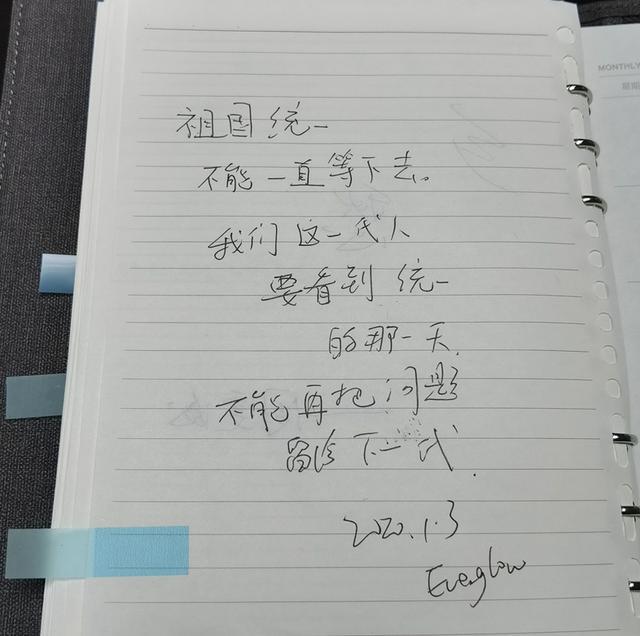 祖国统一
不能一直等下去。
我们这一代人
要看到统一
的那一天.
不能再把问题
留给下一代.
2020.1.3
Everglow
MONTHLY
星期